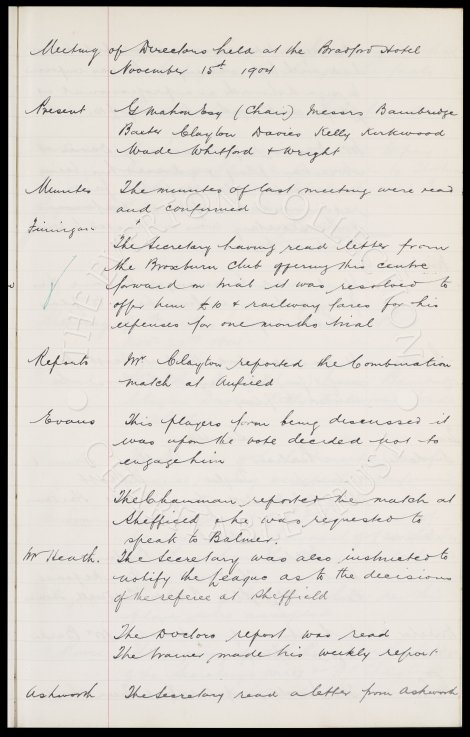 Meeting of Directors held at the Bradford Hotel
November 15th 1904
Present G Mahon Esq (Chair) Messrs Bainbridge
Baxter Clayton Davies Kelly Kirkwood
Wade Whitford & Wright
Minutes The minutes of last meeting were read
and confirmed
Finnigan
The Secretary having read letter from
the Broxburn Club offering this centre
forward on trial it was resolved to
offer him £10 & railway fares for his
expenses for one months trial
Reports Mr Clayton reported the Combination
match at Anfield
Evans This players form being discussed it
was upon the vote decided not to
engage him
The Chairman reported the match at
Sheffield & he was requested to
speak to Balmer.
Mr Heath. The Secretary was also instructed to
notify the League as to the decisions
of the referee at Sheffield
The Doctors report was read
The trainer made his weekly report
Ashworth The Secretary read a letter from Ashworth